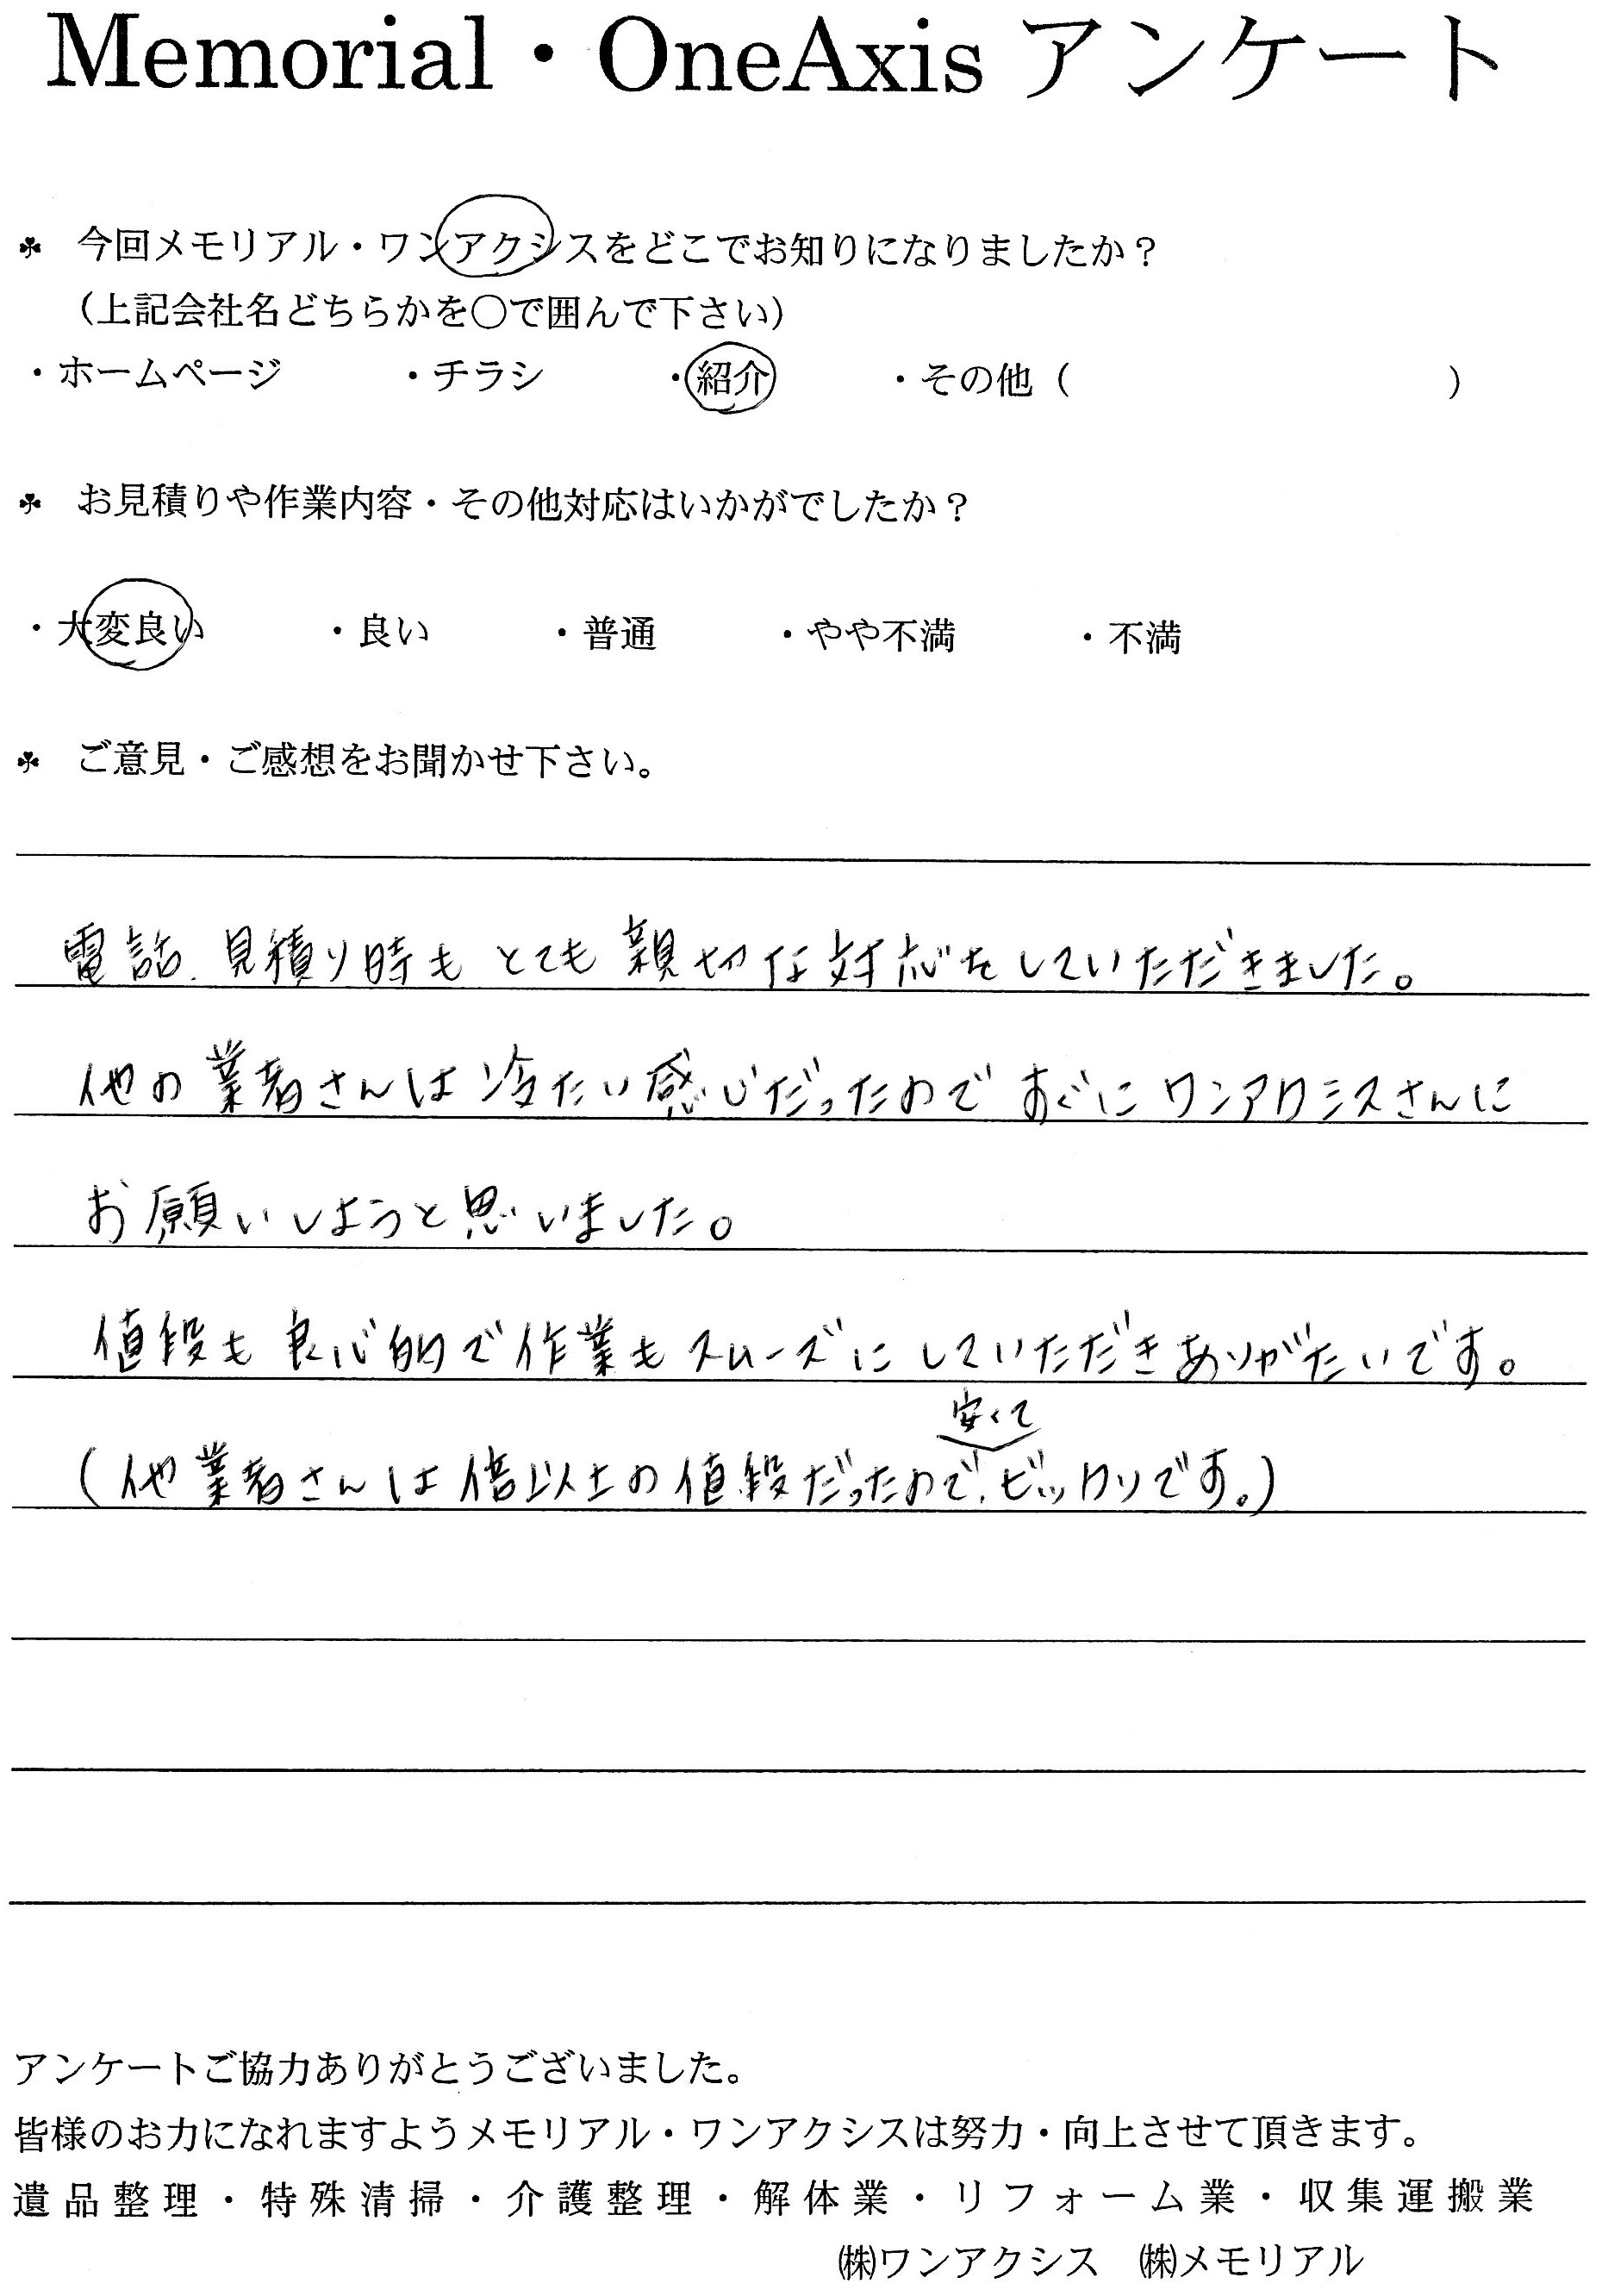 Memorial・OneAxis アンケート
☘ 今回メモリアル・ワンアクシスをどこでお知りになりましたか？
（上記会社名どちらかを○で囲んで下さい）
・ホームページ ・チラシ ・紹介 ・その他（ ）
☘ お見積りや作業内容・その他対応はいかがでしたか？
・大変良い ・良い ・普通 ・やや不満 ・不満
☘ ご意見・ご感想をお聞かせ下さい。
電話、見積り時もとても親切な対応をしていただきました。
他の業者さんは冷たい感じだったのですぐにワンアクシスさんに
お願いしようと思いました。
値段も良心的で作業もスムーズにしていただきありがたいです。
安くて
（他業者さんは倍以上の値段だったので、ビックリです。）
アンケートご協力ありがとうございました。
皆様のお力になれますようメモリアル・ワンアクシスは努力・向上させて頂きます。
遺品整理・特殊清掃・介護整理・解体業・リフォーム業・収集運搬業
㈱ワンアクシス ㈱メモリアル